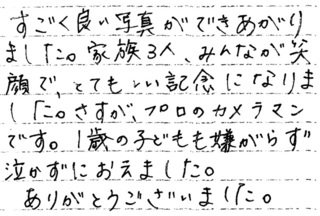 すごく良い写真ができあがり
ました。家族3人、みんなが笑
顔で、とてもいい記念になりま
した。さすが、プロのカメラマン
です。1歳の子どもも嫌がらず
泣かずにおえました。
ありがとうございました。